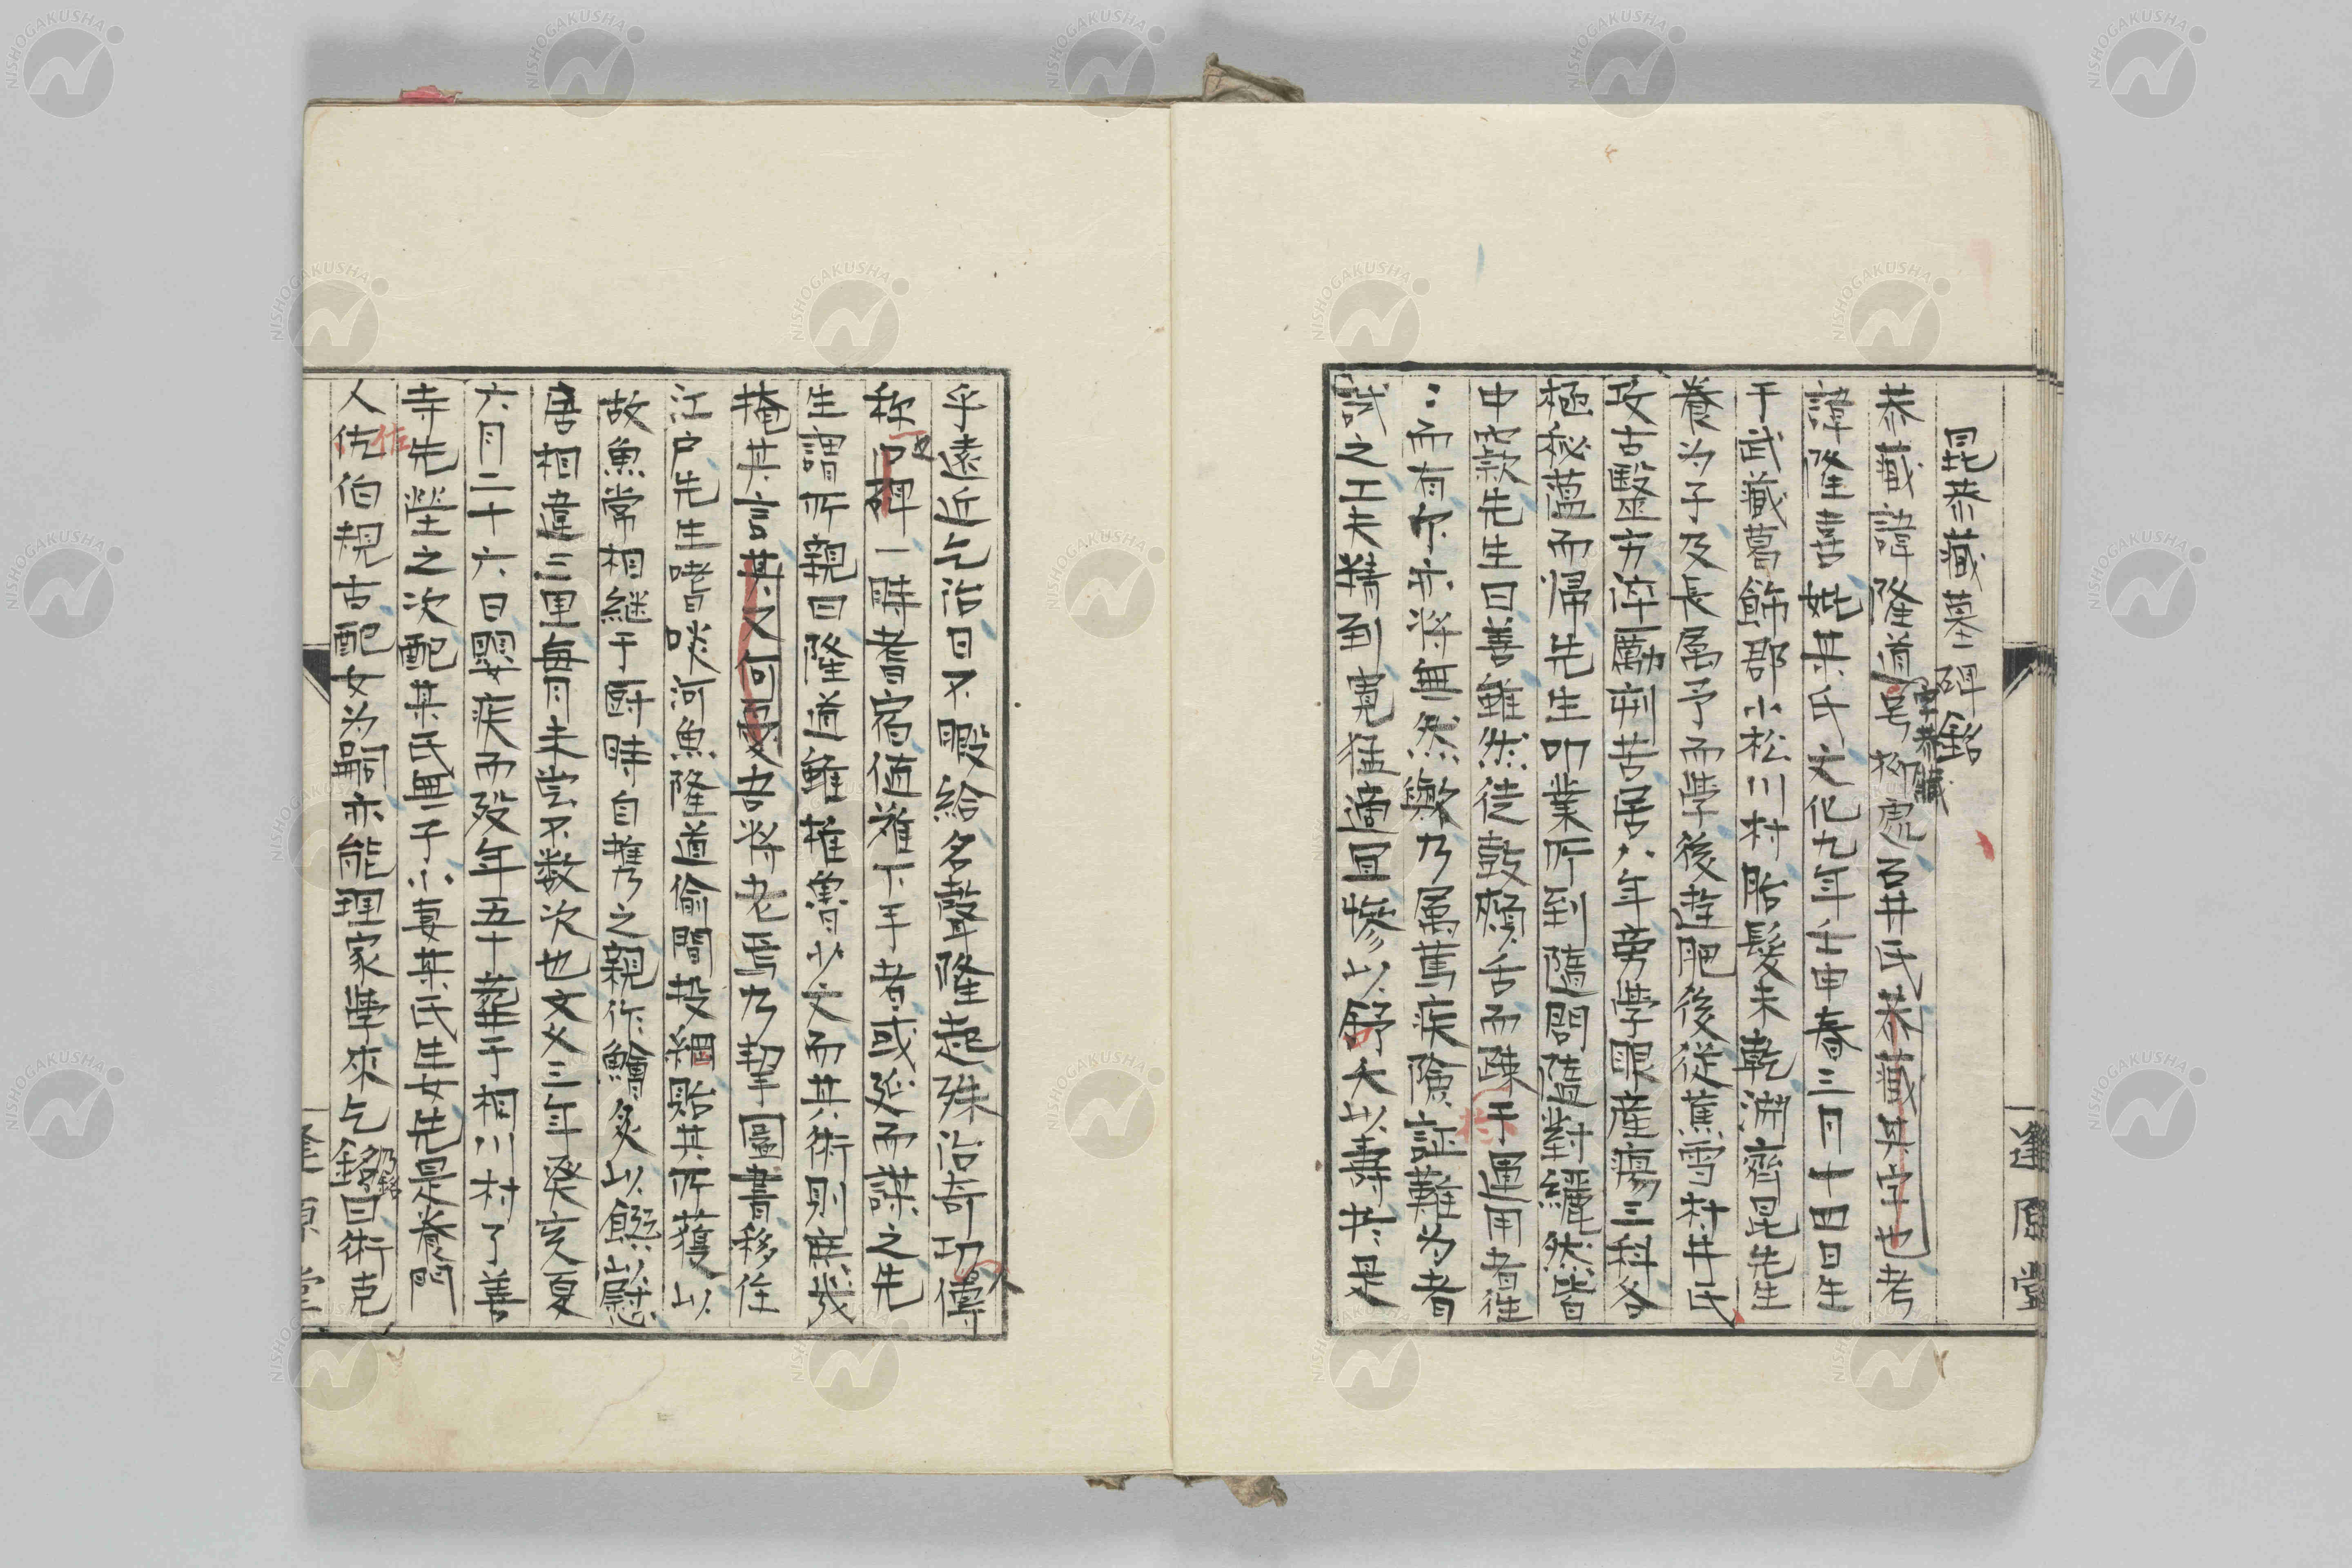 昆恭藏墓碑銘
恭藏諱隆道号柳處石井氏恭藏其字也考
字恭藏
諱隆喜妣某氏文化九年壬申春三月十四日生
于武藏葛飾郡小松川村胎髮未乾溯齊昆先生
養为子及長属予而學後遊肥後從蕉雪村井氏
攻古醫方淬勵刻苦居六年旁學眼産瘍三科各
極秘蘊而帰先生叩業所到隨問隨對纚然皆
中窾先生曰善雖然徒鼓頰舌而疎于運用者往
〻而有尓亦將無然歟乃属篤疾險証難为者
試之工夫精到寛猛適冝慘以舒夭以壽於是
乎遠近乞治日不暇給名聲隆起殊治奇功傳
称口碑一時耆宿値難下手者或延而謀之先
也
生謂所親曰隆道雖椎魯少文而其術則庶幾
掩其言其又何憂吾將老焉乃挈圖書移住
江户先生嗜啖河魚隆道偷閒投網貽其所獲以
故魚常相継于厨時自携之親作鱠炙以饌以慰
居相違三里每月未嘗不数次也文久三年癸亥夏
六月二十六日嬰疾而殁年五十葬于相川村了善
寺先塋之次配某氏無子小妻某氏生女先是養門
人佐伯規古配女为嗣亦能理家學來乞銘曰術克
佐
乃銘
逢原堂
逢原堂
NISHOGAKUSHA